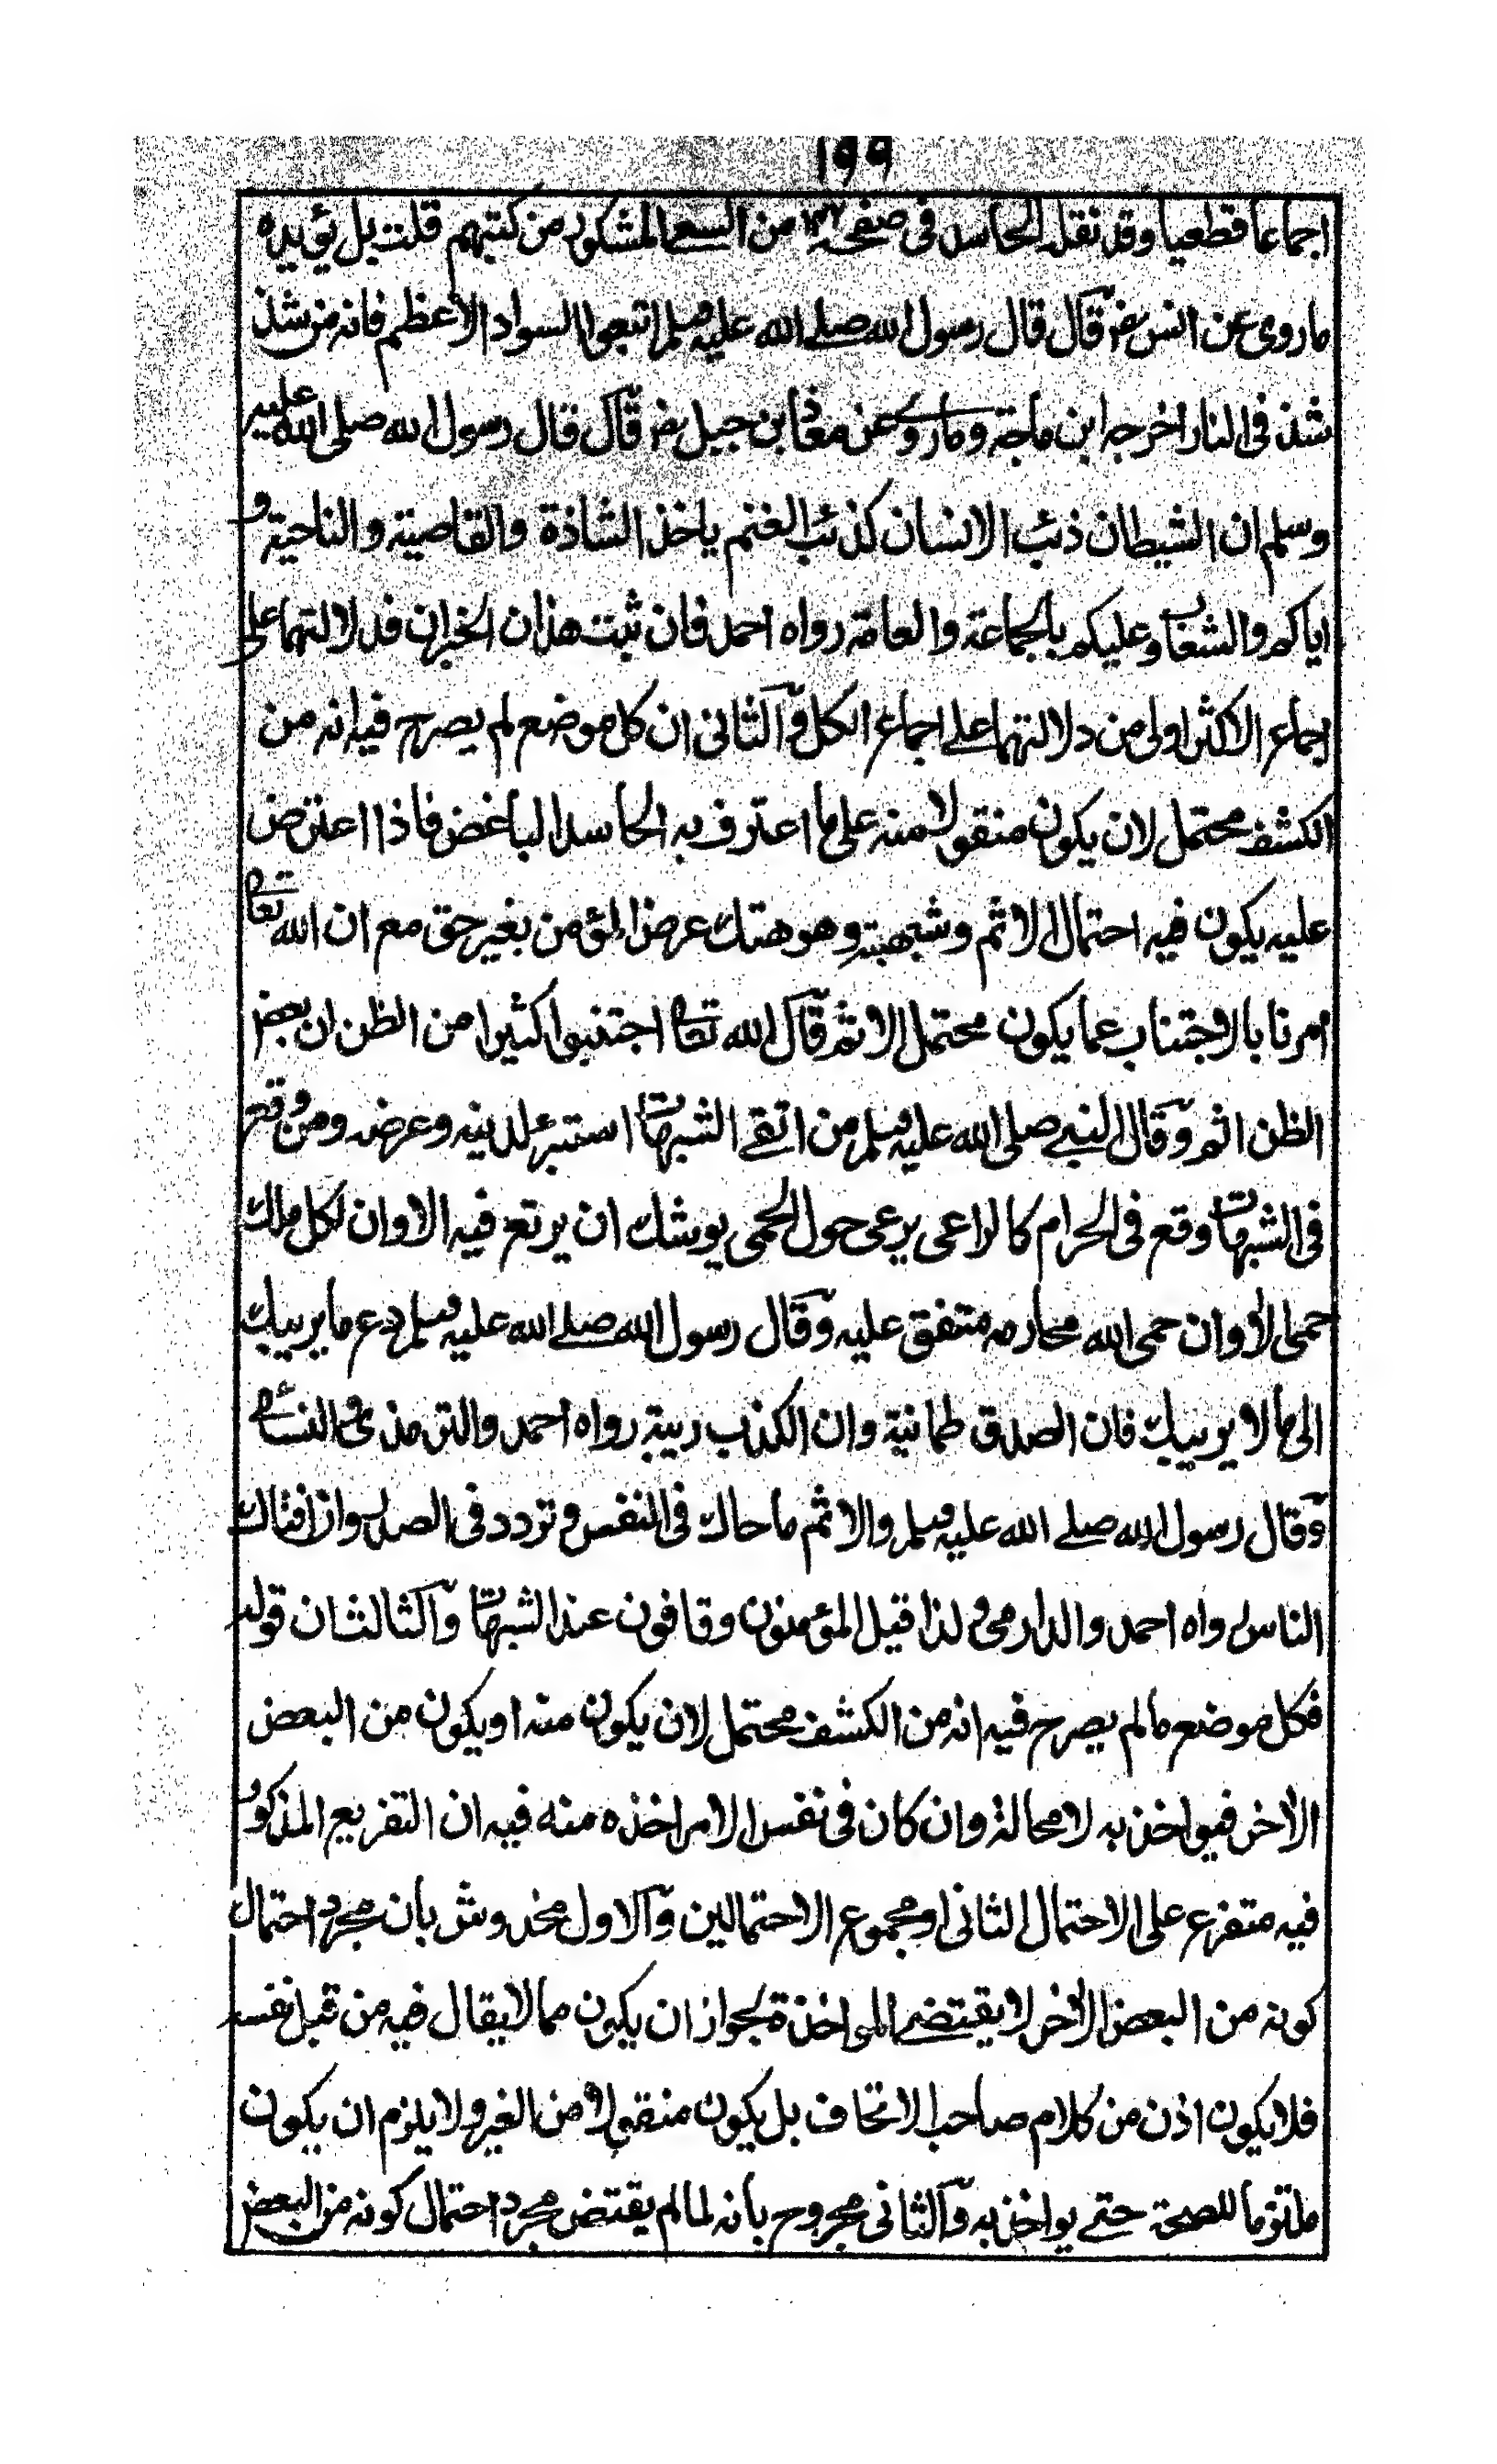 ١٩٩
اجماعا قطعيا وقد نقله الحاسد فى صفحه ١٣٧ من السعى المشكور من كتبهم قلت بل يؤيده
ما روى عن انس رض قال قال رسول الله صلے الله عليه وسلم اتبعوا السواد الأعظم فانه من شذ
شذ فى النار اخرجه ابن ماجة وما روى عن معاذ بن جبل رض قال قال رسول الله صلى الله عليه
وسلم ان الشيطان ذئب الانسان كذئب الغنم ياخذ الشاذة والقاصية والناحية و
اياكم والشعاب وعليكم بالجماعة والعامة رواه احمد فان ثبت هذان الخبران فدلالتهما على
اجماع الاكثر اولى من دلالتهما على اجماع الكل والثانى ان كل موضع لم يصرح فيه انه من
الكشف محتمل لان يكون منقولا منه على ما اعترف به الحاسد الباغض فاذا اعترض
عليه يكون فيه احتمال الاثم وشبهته وهو هتك عرض المؤمن بغير حق مع ان الله تعالى
امرنا بالاجتناب عما يكون محتمل الاثم قال الله تعالى اجتنبوا كثيرا من الظن ان بعض
الظن اثم وقال النبى صلى الله عليه وسلم من اتقے الشبهات استبرئ لدينه وعرضه ومن وقع
فى الشبهات وقع فى الحرام كالراعى يرعى حول الحمى يوشك ان يرتع فيه الا وان لكل ملك
حمى الا وان حمى الله محارمه متفق عليه وقال رسول الله صلے الله عليه وسلم دع ما يريبك
الى ما لا يريبك فان الصدق طمانية وان الكذب ريبة رواه احمد والترمذى والنسائى
وقال رسول الله صلے الله عليه وسلم والاثم ما حاك فى النفس وتردد فى الصدر وان افتاك
الناس رواه احمد والدارمى ولذا قيل المؤمنون وقافون عند الشبهات والثالث ان قوله
فكل موضع ما لم يصرح فيه انه من الكشف محتمل لان يكون منه او يكون من البعض
الاخر فيواخذ به لا محالة وان كان فى نفس الامر اخذه منه فيه ان التفريع المذكور
فيه متفرع على الاحتمال الثانى او مجموع الاحتمالين والاول مخدوش بان مجرد احتمال
كونه من البعض الاخر لا يقتضے المواخذة لجواز ان يكون مما لا يقال فيه من قبل نفسه
فلا يكون اذن من كلام صاحب الاتحاف بل يكون منقولا من الغير ولا يلزم ان يكون
ملتزما للصحة حتے يواخذ به والثانى مجروح بانه لما لم يقتض مجرد احتمال كونه من البعض